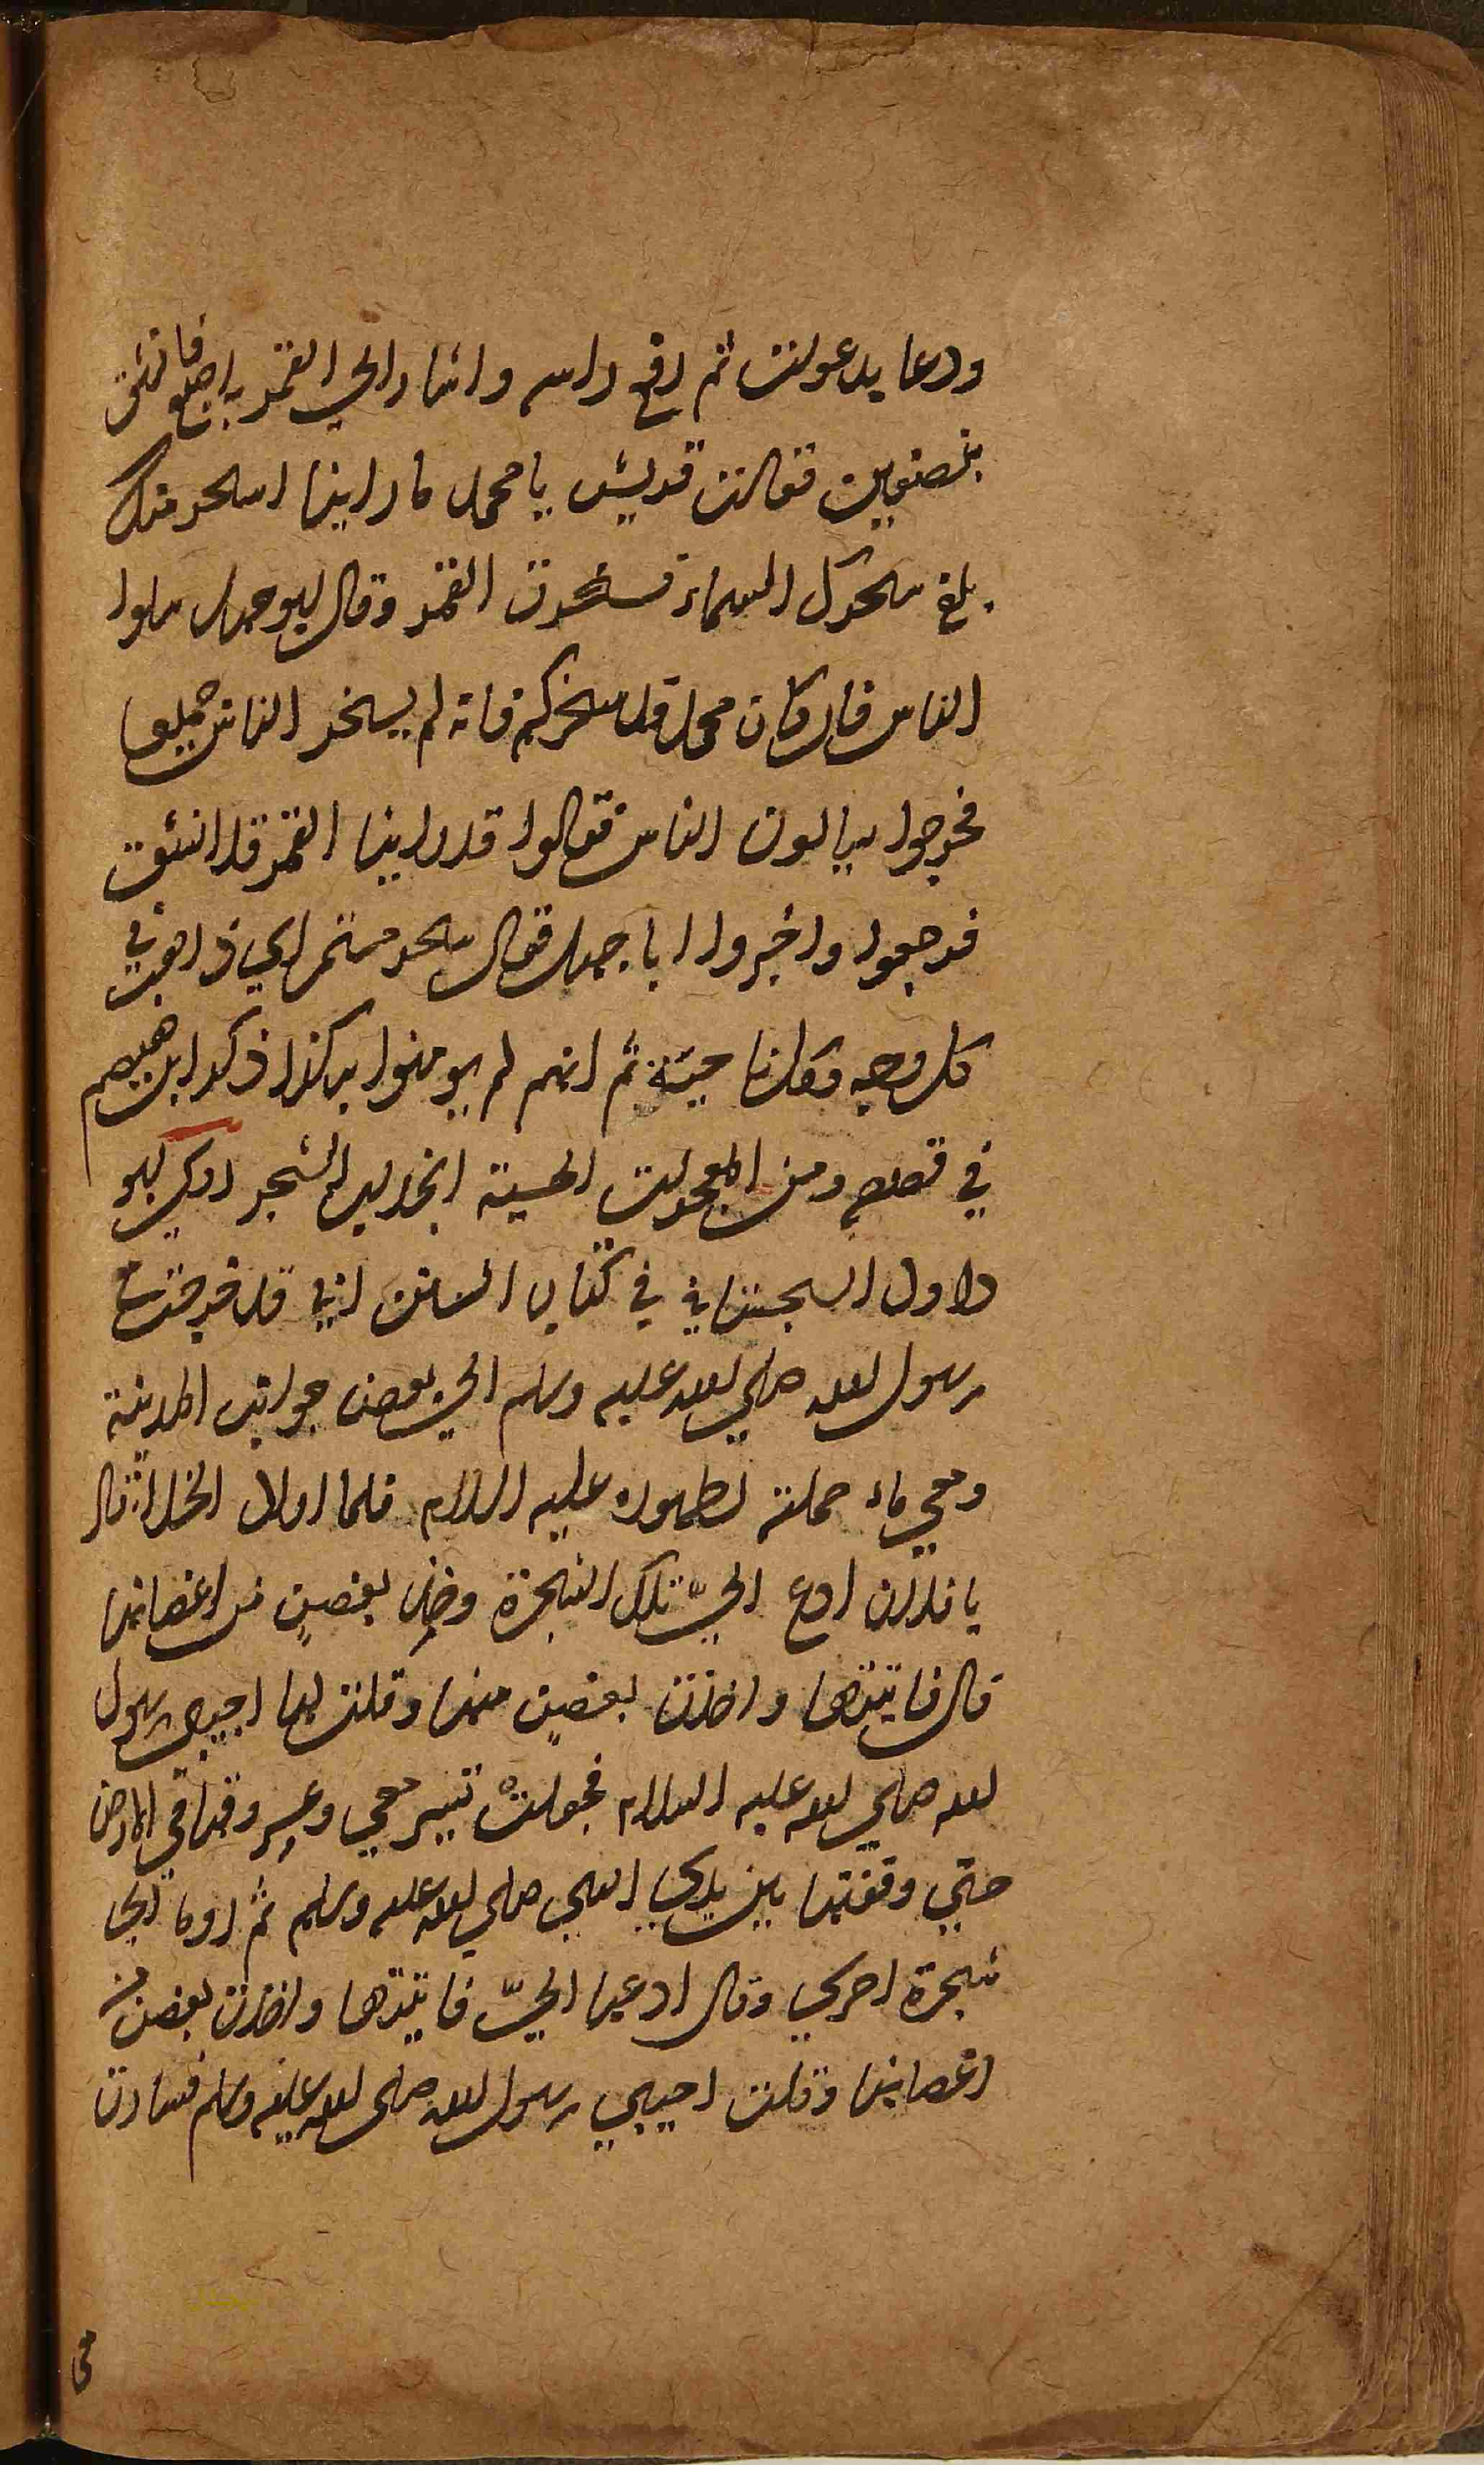 ودعا بدعوات ثم رفع راسه واشار الي القمر باصبعه فانشق
بنصفين فقالت قريش يا محمد ما راينا اسحر منك
بلغ سحرك السماء فسحرت القمر وقال ابو جهل سلوا
الناس فان كان محمد قد سحركم فانه لم يسحر الناس جميعا
فخرجوا يسالون الناس فقالوا قد راينا القمر قد انشق
فرجعوا واخبروا ابا جهل فقال سحر مستمر اي ذاهب في
كل وجه ثم انهم لم يومنوا به كذا ذكر ابراهيم
في قصصه ومن المعجزات الحسية انجذاب الشجر روي ابو
داود السجستاني في كتاب السنن اني قد خرجت مع
رسول الله صلي الله عليه وسلم الي بعض جوانب المدينة
ومعي ماء حملته لطهوره عليه السلام فلما اراد الخلا قال
يا فلان ادع اليّ تلك الشجرة وخذ بغصنٍ من اغصانها
قال فاتيتها واخذت بغصنٍ منها وقلت لها اجيبي رسول
الله صلي الله عليه السلام فجعلتْ تسير معي وعروقها في الارض
حتي وقفتها بين يدي النبي صلي الله عليه وسلم ثم اوما الي
شجرة اخري وقال ادعها اليّ فاتيتها واخذت بغصن من
اغصانها وقلت اجيبي رسول الله صلى الله عليه وسلم فسارت